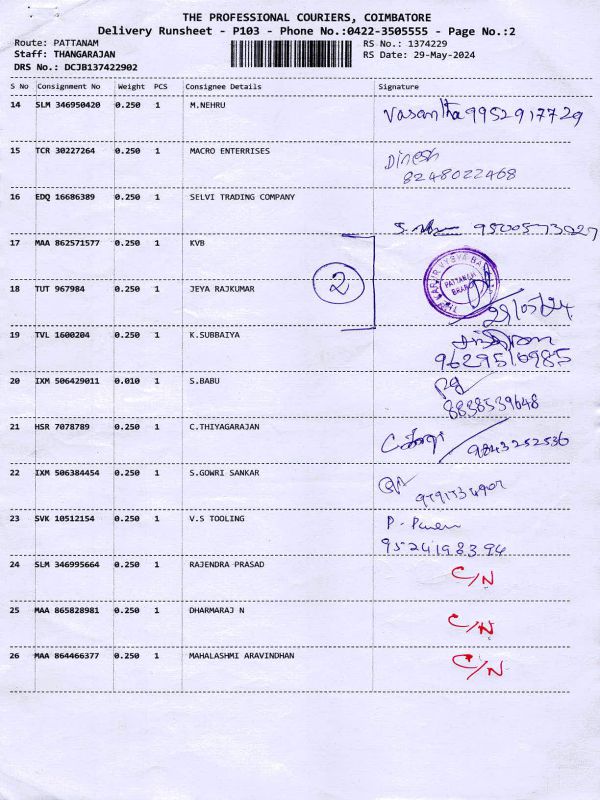 THE PROFESSIONAL COURIERS, COIMBATORE
Delivery Runsheet - P103 - Phone No.:0422-3505555 - Page No.:2
Route: PATTANAM RS No.: 1374229
Staff: THANGARAJAN RS Date: 29-May-2024
DRS No.: DCJB137422902
S No Consignment No Weight PCS Consignee Details Signature
14 SLM 346950420 0.250 1 M.NEHRU Vasantha 9952917729
15 TCR 30227264 0.250 1 MACRO ENTERRISES Dinesh
8248022468
16 EDQ 16686389 0.250 1 SELVI TRADING COMPANY
S. 9500573027
17 MAA 862571577 0.250 1 KVB
2 PATTANAM BRANCH
18 TUT 967984 0.250 1 JEYA RAJKUMAR
29/05/24
19 TVL 1600204 0.250 1 K.SUBBAIYA
9629516985
20 IXM 506429011 0.010 1 S.BABU
8838539648
21 HSR 7078789 0.250 1 C.THIYAGARAJAN 9843252536
22 IXM 506384454 0.250 1 S.GOWRI SANKAR
23 SVK 10512154 0.250 1 V.S TOOLING P.
9524198394
24 SLM 346995664 0.250 1 RAJENDRA PRASAD C/N
25 MAA 865828981 0.250 1 DHARMARAJ N C/N
26 MAA 864466377 0.250 1 MAHALASHMI ARAVINDHAN C/N